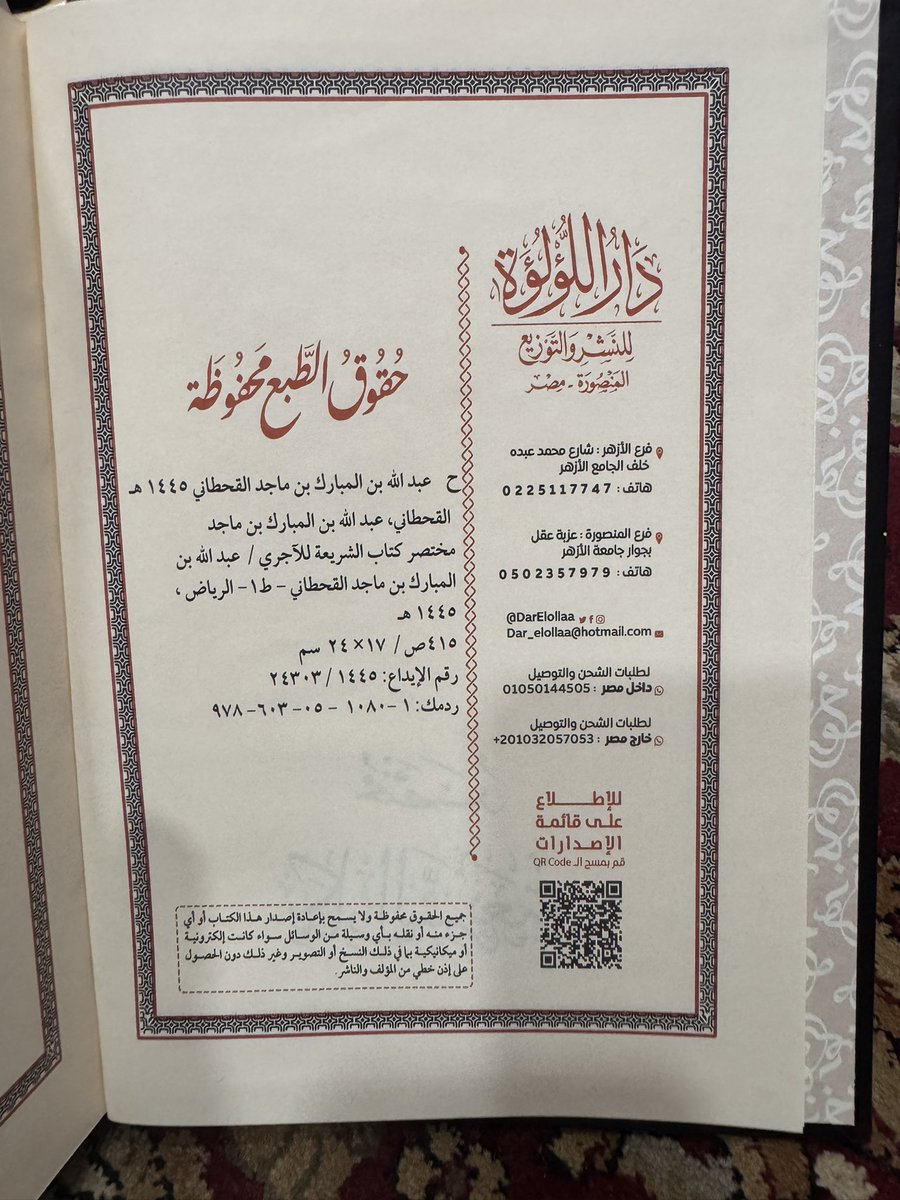 دَارُ اللُّؤْلُؤَة
لِلنَّشْرِ وَالتَّوْزِيعِ
المَنْصُورَة - مِصْر
فرع الأزهر : شارع محمد عبده
خلف الجامع الأزهر
هاتف : 0225117747
فرع المنصورة : عزبة عقل
بجوار جامعة الأزهر
هاتف : 0502357979
@DarElollaa
Dar_elollaa@hotmail.com
لطلبات الشحن والتوصيل
داخل مصر : 01050144505
لطلبات الشحن والتوصيل
خارج مصر : 201032057053+
للإطلاع
على قائمة
الإصدارات
قم بمسح الـ QR Code
حُقُوقُ الطَّبع مَحفُوظَة
ح عبد الله بن المبارك بن ماجد القحطاني ١٤٤٥ هـ
القحطاني، عبد الله بن المبارك بن ماجد
مختصر كتاب الشريعة للآجري / عبد الله بن
المبارك بن ماجد القحطاني - ط١- الرياض ،
١٤٤٥ هـ
٤١٥ص / ١٧×٢٤ سم
رقم الإيداع: ١٤٤٥ / ٢٤٣٠٣
ردمك: ١ -١٠٨٠ - ٠٥- ٦٠٣- ٩٧٨
جميع الحقوق محفوظة ولا يسمح بإعادة إصدار هذا الكتاب أو أي
جزء منه أو نقله بأي وسيلة من الوسائل سواء كانت إلكترونية
أو ميكانيكية بما في ذلك النسخ أو التصوير وغير ذلك دون الحصول
على إذن خطي من المؤلف والناشر.